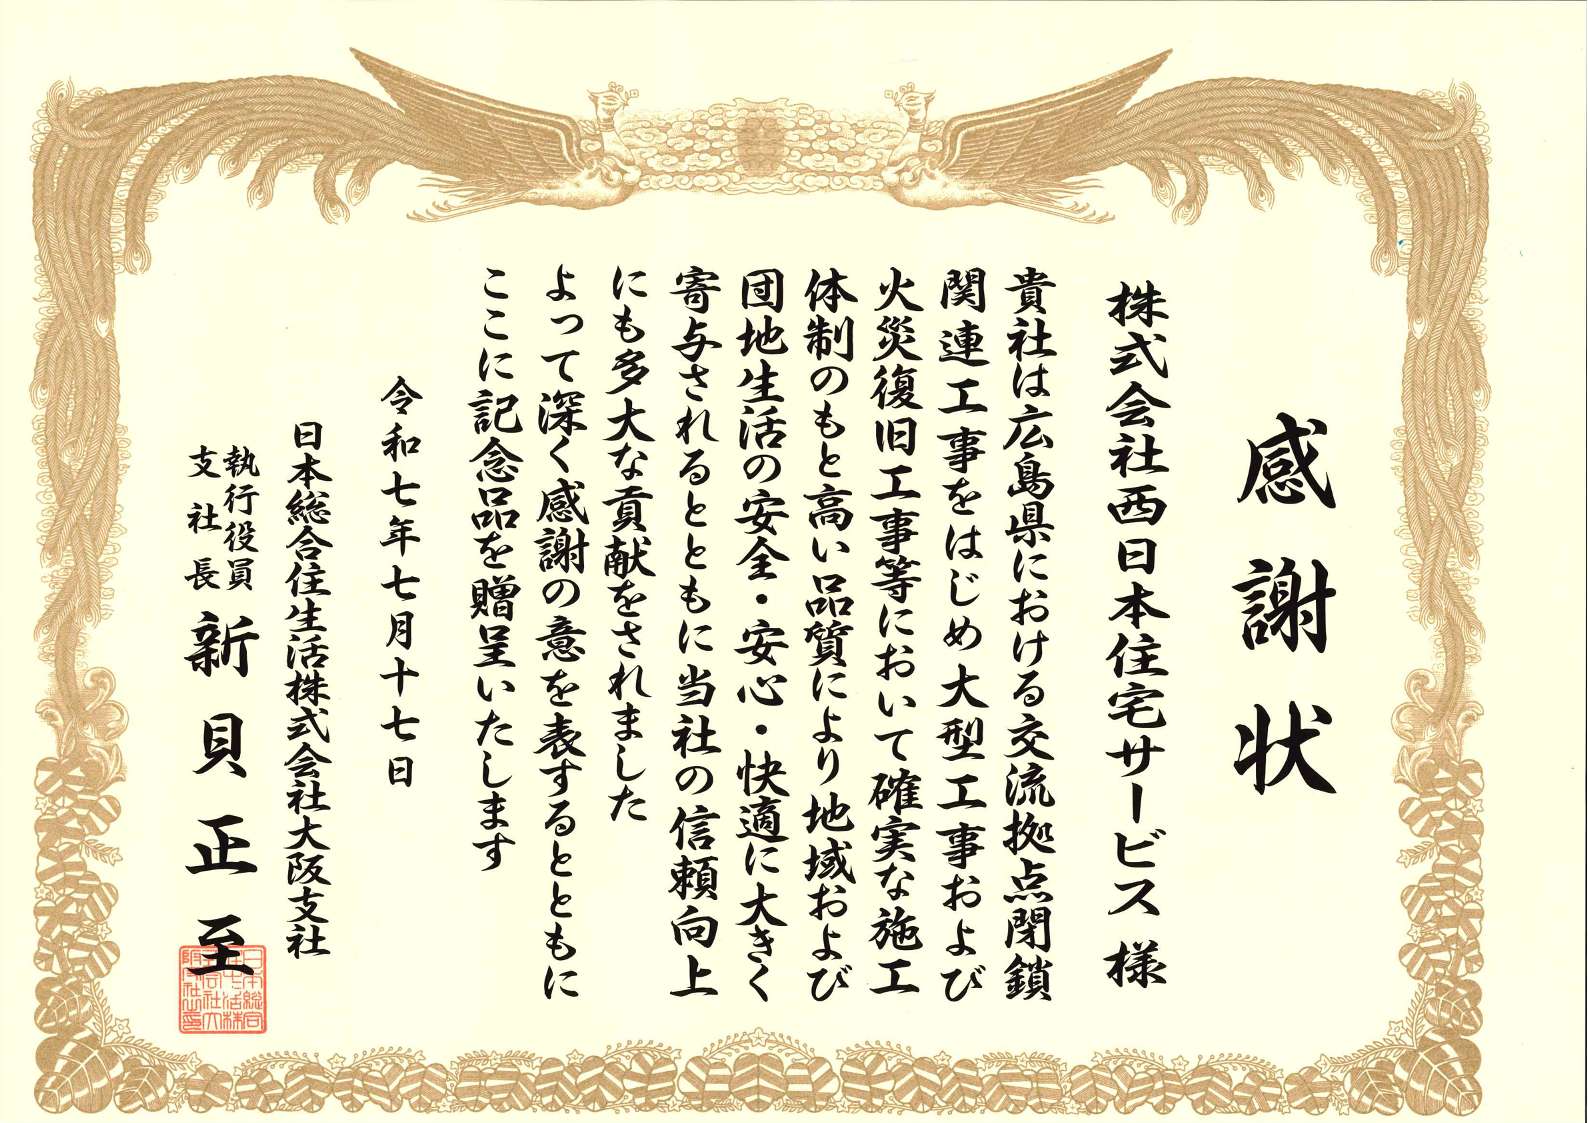 感謝状
株式会社西日本住宅サービス 様
貴社は広島県における交流拠点閉鎖
関連工事をはじめ大型工事および
火災復旧工事等において確実な施工
体制のもと高い品質により地域および
団地生活の安全・安心・快適に大きく
寄与されるとともに当社の信頼向上
にも多大な貢献をされました
よって深く感謝の意を表するとともに
ここに記念品を贈呈いたします
令和七年七月十七日
日本総合住生活株式会社大阪支社
執行役員
支社長
新貝正至